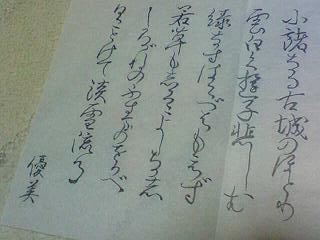 小諸なる古城のほとり
雲白く遊子悲しむ
緑なすはこべはもえず
若草も志くによしなし
しろがねのふすまの岡べ
日にとけて淡雪流る
優美